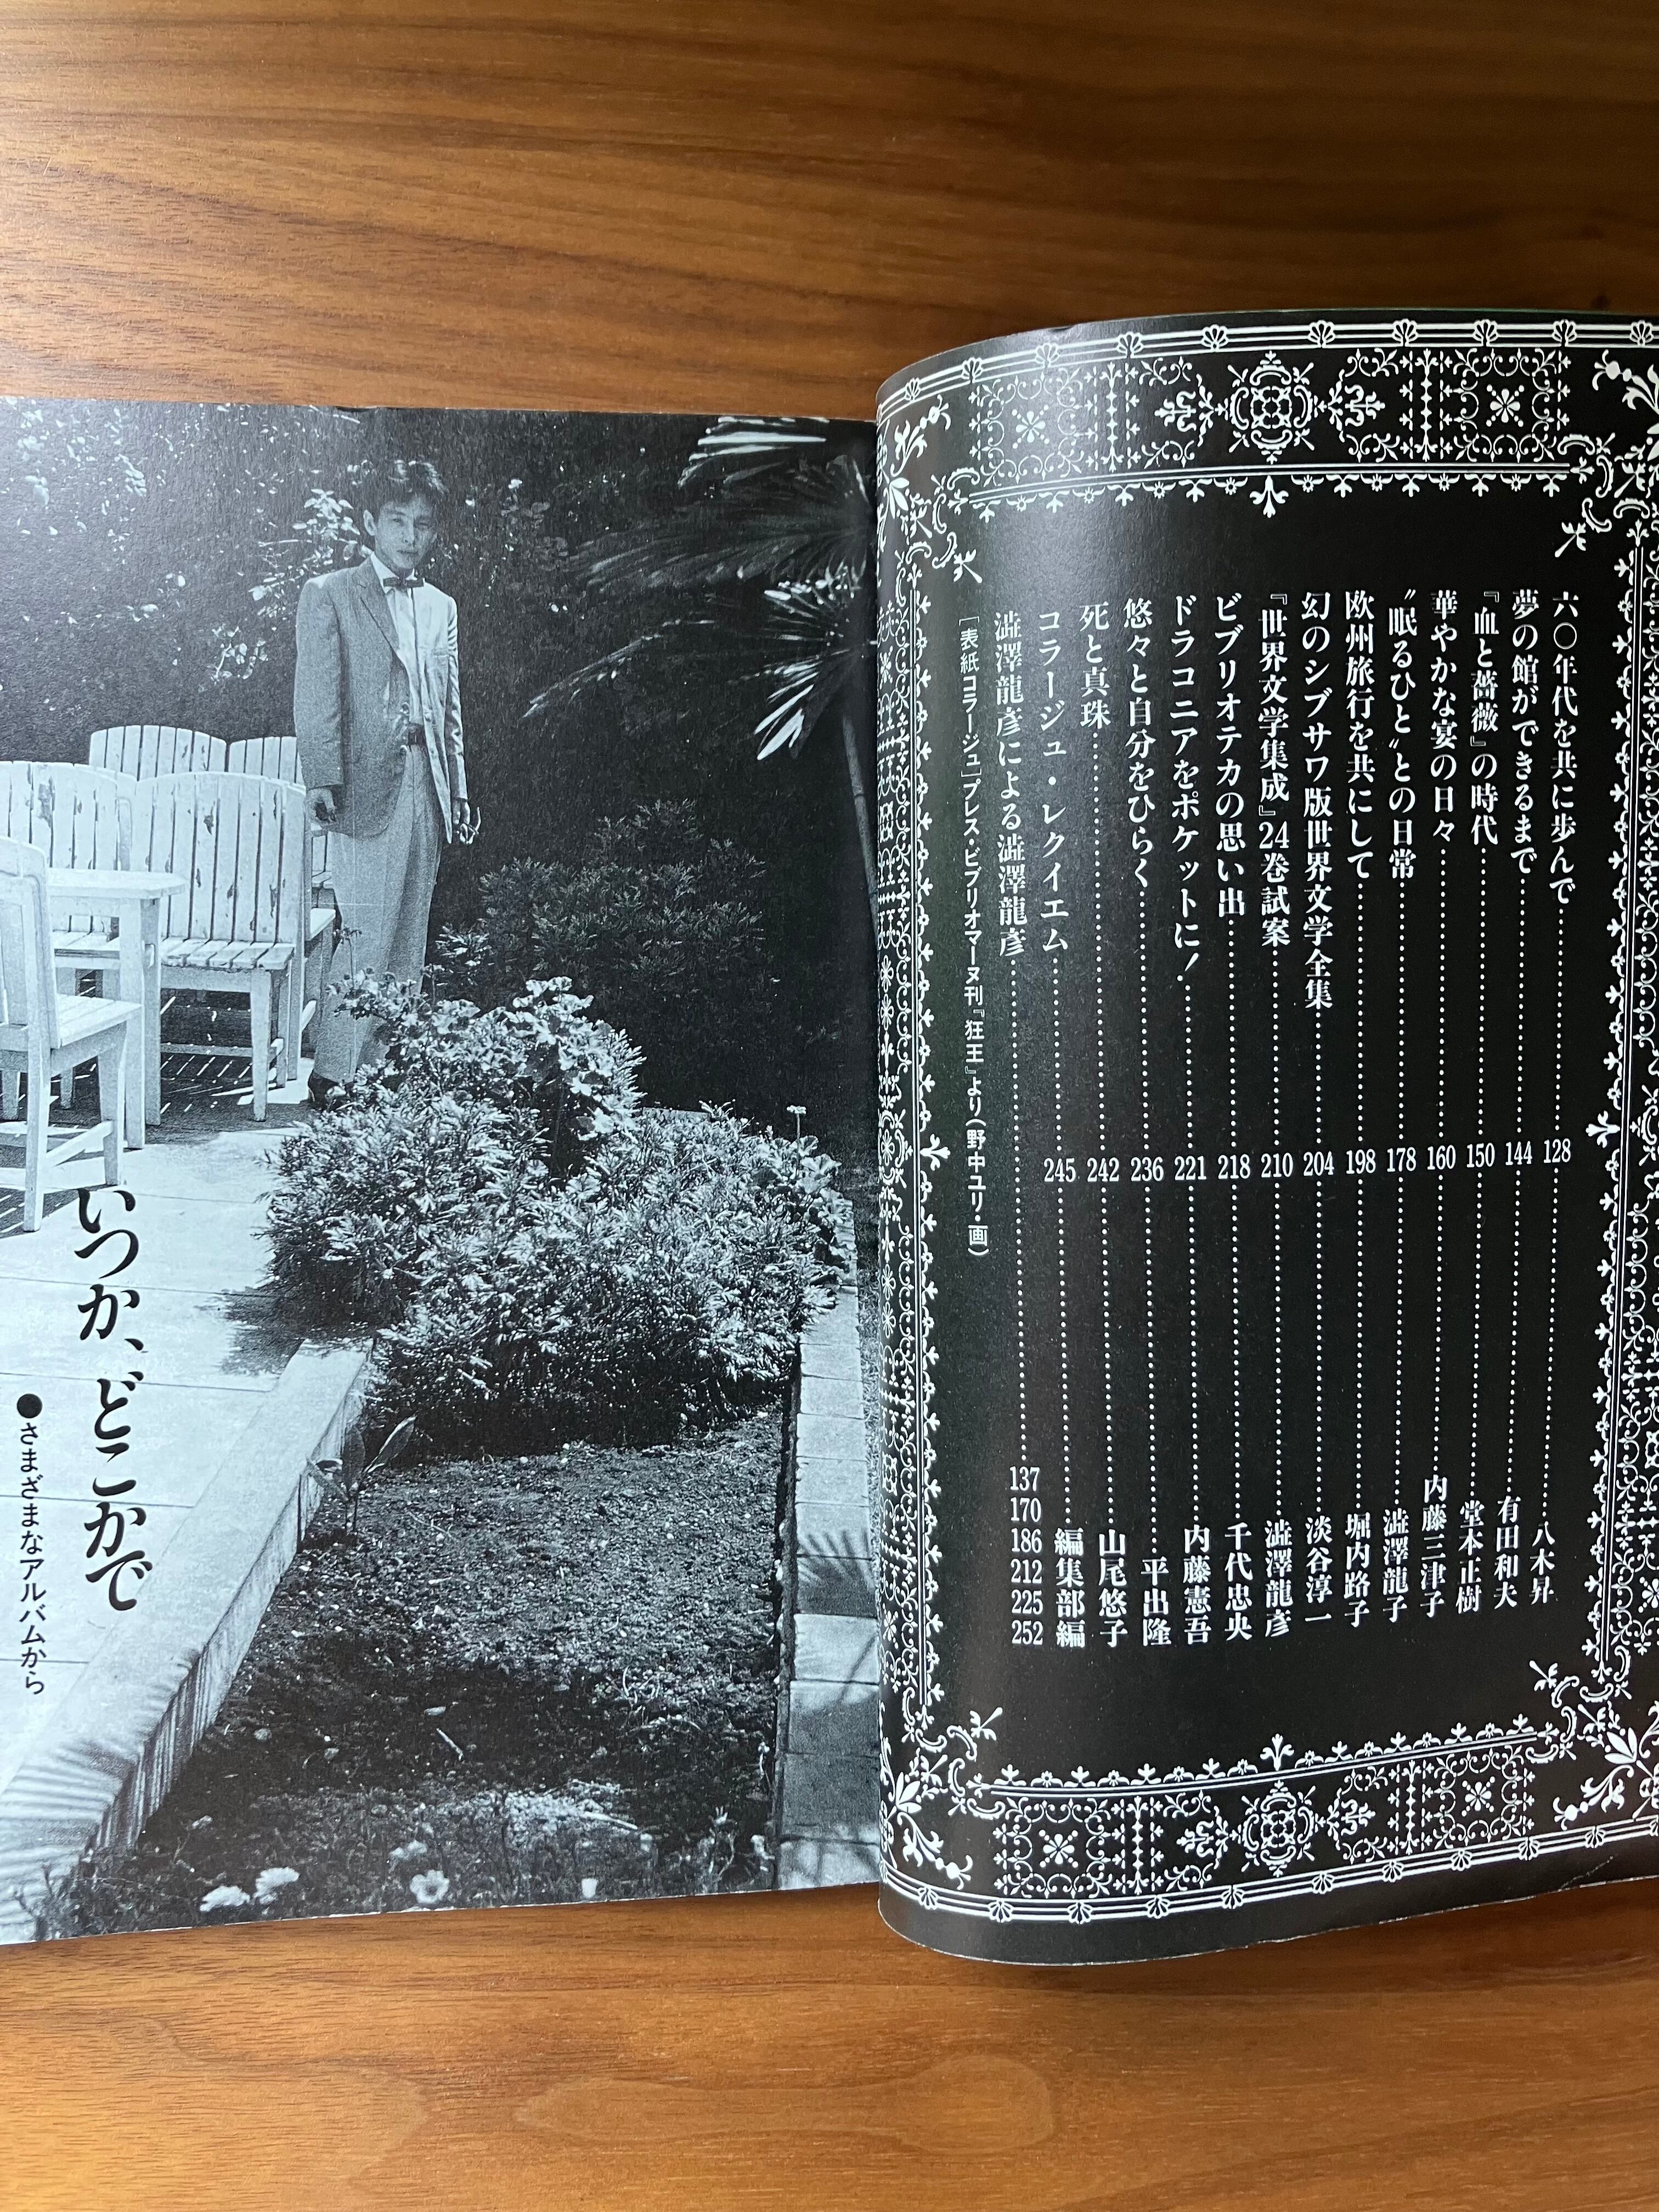 六〇年代を共に歩んで……128……八木昇
夢の館ができるまで……144……有田和夫
『血と薔薇』の時代……150……堂本正樹
華やかな宴の日々……160……内藤三津子
〝眠るひと〟との日常……178……澁澤龍子
欧州旅行を共にして……198……堀内路子
幻のシブサワ版世界文学全集……204……淡谷淳一
『世界文学集成』24巻試案……210……澁澤龍彦
ビブリオテカの思い出……218……千代忠央
ドラコニアをポケットに!……221……内藤憲吾
悠々と自分をひらく……236……平出隆
死と真珠……242……山尾悠子
コラージュ・レクイエム……245……編集部編
澁澤龍彦による澁澤龍彦……137 170 186 212 225 252
[表紙コラージュ]プレス・ビブリオマーヌ刊『狂王』より(野中ユリ・画)
いつか、どこかで
●さまざまなアルバムから